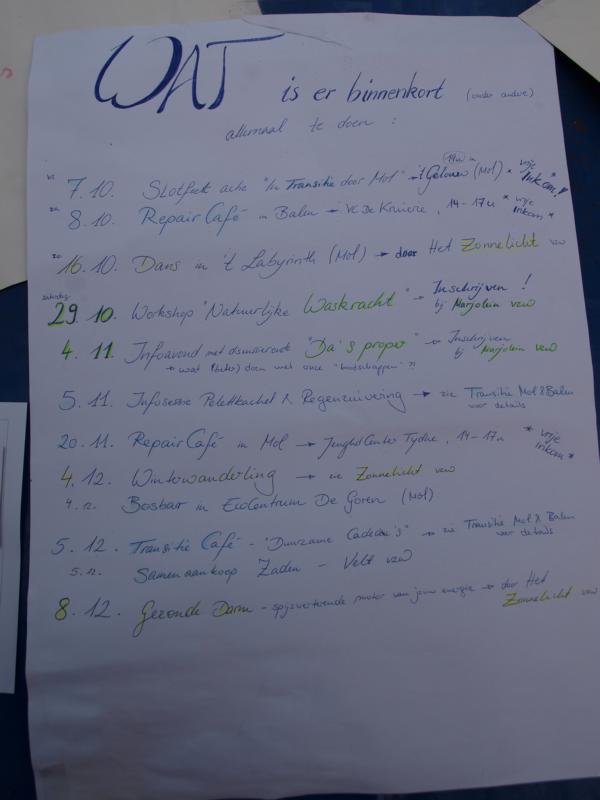 WAT is er binnenkort (onder andere)
allemaal te doen :
7.10. Slotfeest actie "In Transitie door Mol" → 't Getouw (Mol) * vrije Inkom!
8.10. Repair Café in Balen → VC De Kruierie, 14-17u * vrije Inkom *
16.10. Dans in 't Labyrinth (Mol) → door Het Zonnelicht vzw
zaterdag
29.10. Workshop "Natuurlijke Waskracht" → Inschrijven !
bij Marjolein vzw
4.11. Infoavond met "Da's proper" → Inschrijven
→ wat (beter) doen met onze "boodschappen" ?!
bij Marjolein vzw
5.11. Infosessie Pelletkachel & Regenzuivering → zie Transitie Mol & Balen
voor details
20.11. Repair Café in Mol → Jeugdcenter Tydeeh, 14-17u * vrije Inkom *
4.12. Winterwandeling → zie Zonnelicht vzw
4.12. Bosbar in EcoCentrum De Goren (Mol)
5.12. Transitie Café - "Duurzame Cadeau's" → zie Transitie Mol & Balen
voor details
5.12. Samenaankoop Zaden - Velt vzw
8.12. Gezonde Darm - spijsverterende motor van jouw energie → door Het
Zonnelicht vzw